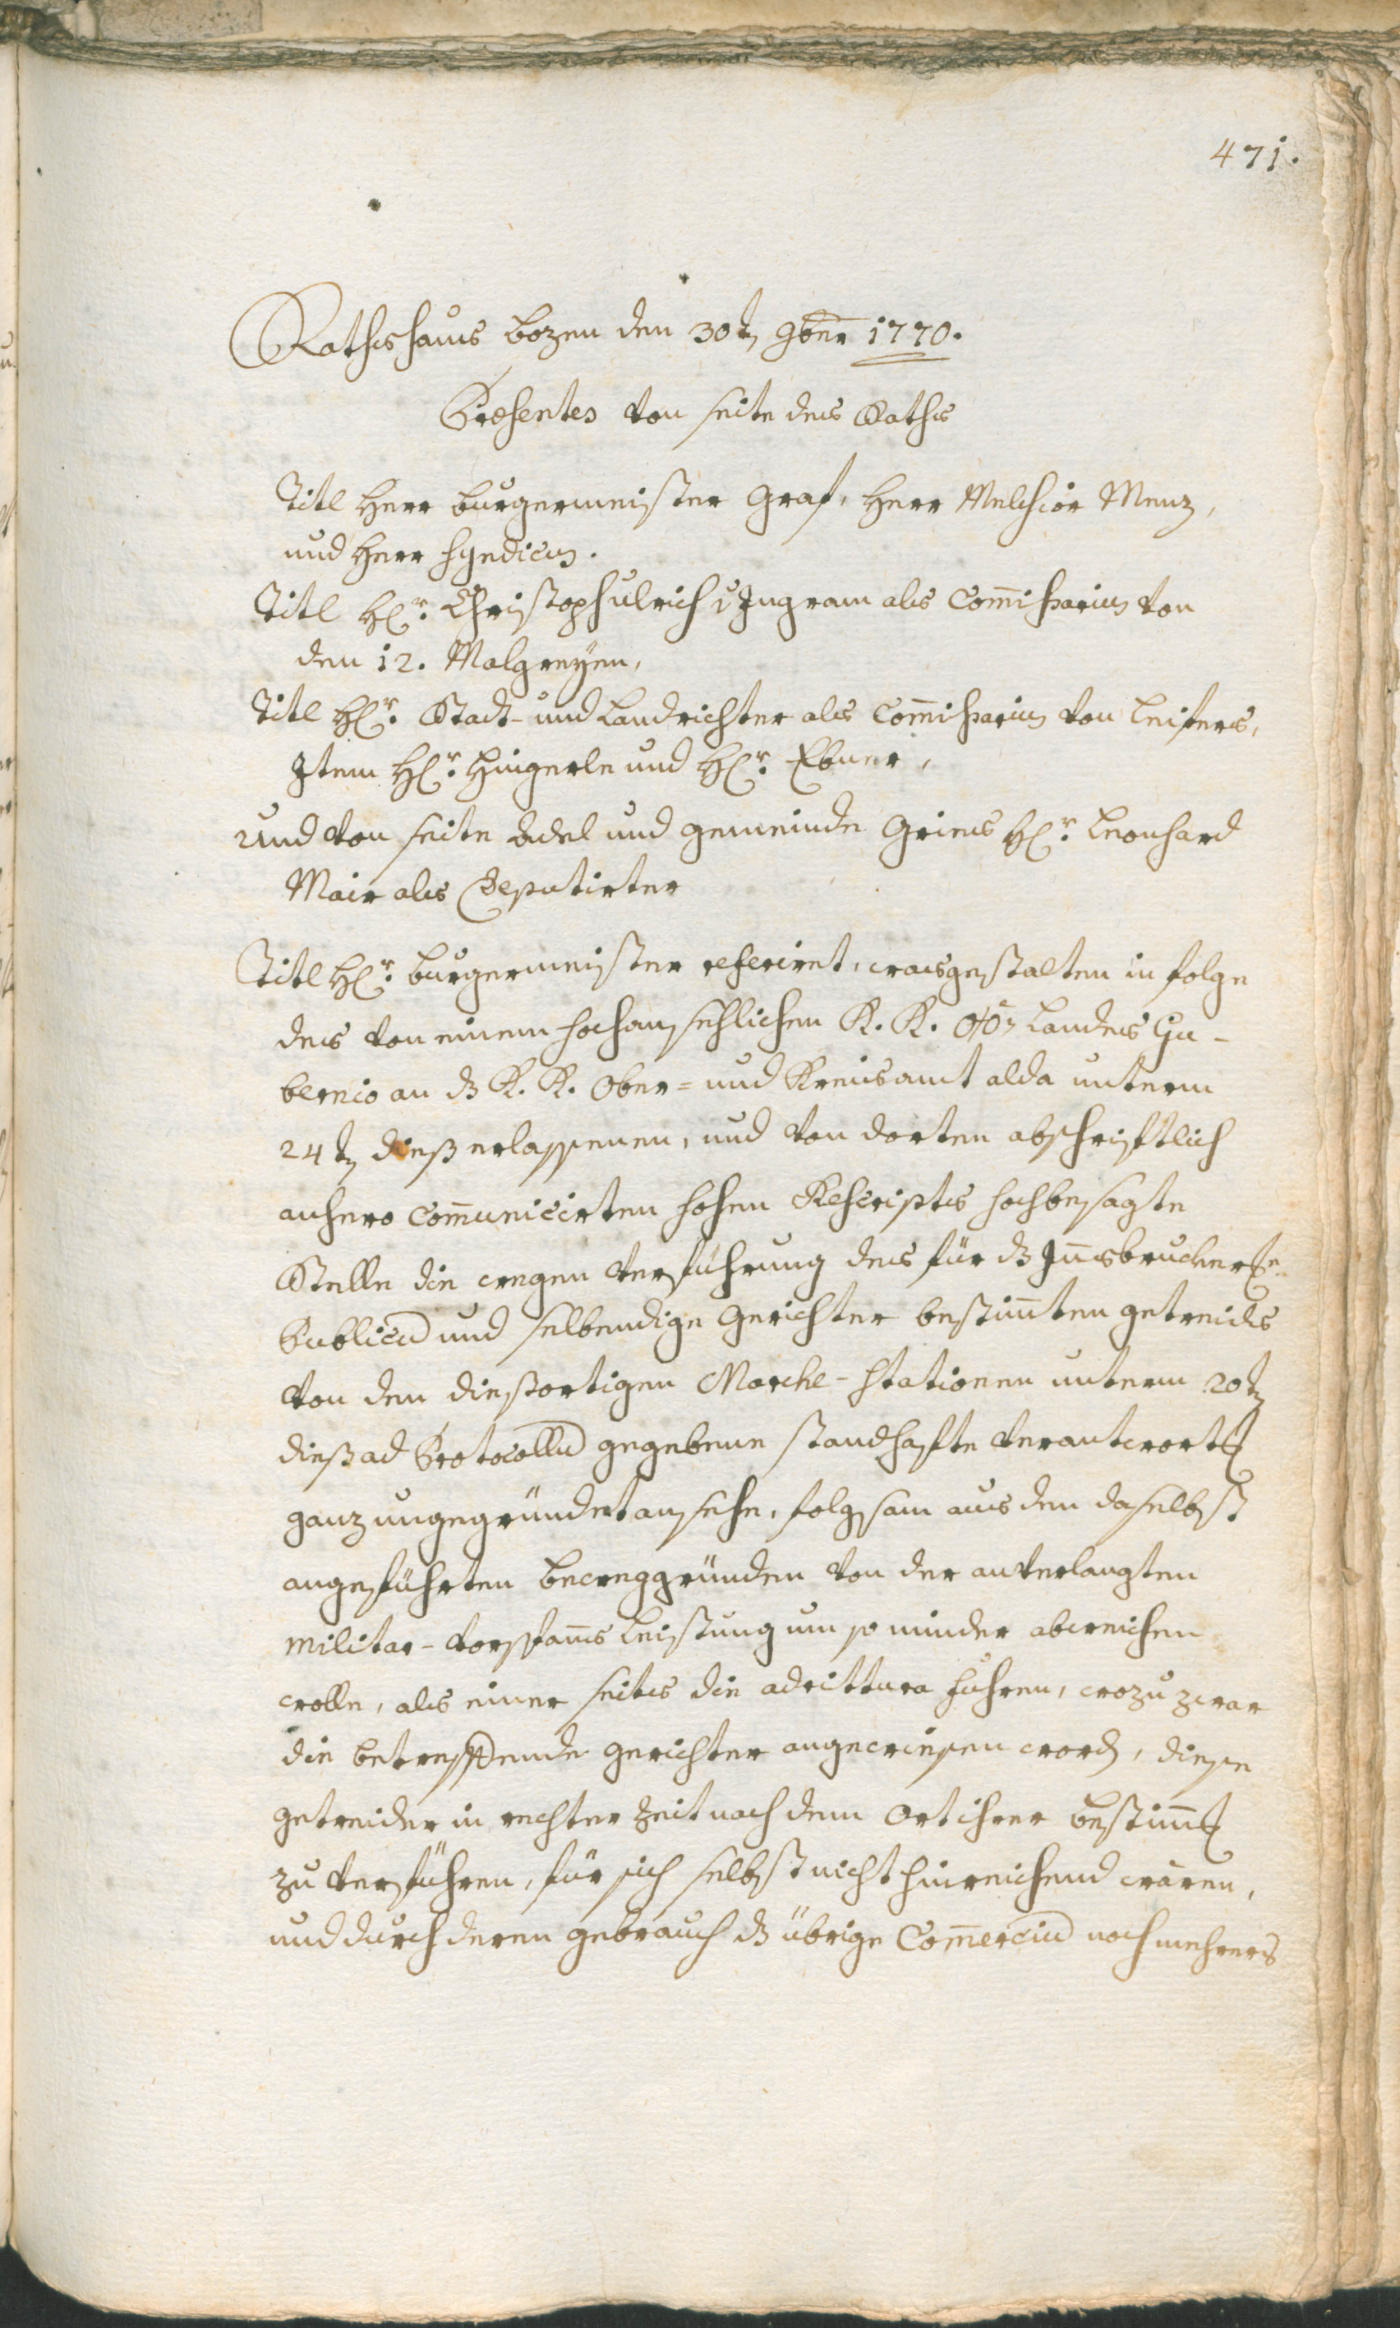 471.
Rathshaus Bozen den 30t(en) 9ber 1770.
Præsentes von seite des Raths
Titl Herr burgermeister Graf, Herr Melchior Menz,
und Herr Syndicus.
Titl H(er)r. Christoph Ulrich v Ingram als Commissarius von
den 12. Malgreyen,
Titl H(er)r. Stadt- und Landrichter als Commissarius von Leifers,
Item H(er)r. Hingerle und H(er)r. Ebner,
und von seite Adel und gemeinde Gries H(er)r. Leonhard
Mair als Deputirter
Titl H(er)r. burgermeister referirt, wasgestalten in folge
des von einem hochansehlichen K. K. OÖ Landes Gu-
bernio an dz K. K. Ober- und Kreisamt alda unterm
24t(en) dieß erlassenen, und von dorten abschriftlich
anhero communicirten hohen Rescripts hochbesagte
Stelle die wegen verführung des für dz Innsbrucker
Publicum und selbendige Gerichter bestimten getreids
von den dießortigen Marche-Stationen unterm 20t(en)
dieß ad Protocollum gegebene standhafte verantwort(ung)
ganz ungegründet ansehe, folgsam aus den daselbst
angeführten beweggründen von der anverlangten
Militar-vorspanns leistung um so minder abweichen
wolle, als einer seits die adrittura fuhren, wozu zwar
die betreffende gerichter angewiesen word(en), diese
getreider in rechter zeit nach dem ort ihrer bestimm(ung)
zu verführen, für sich selbst nicht hinreichend wären,
und durch deren gebrauch dz übrige Commercium noch mehrers